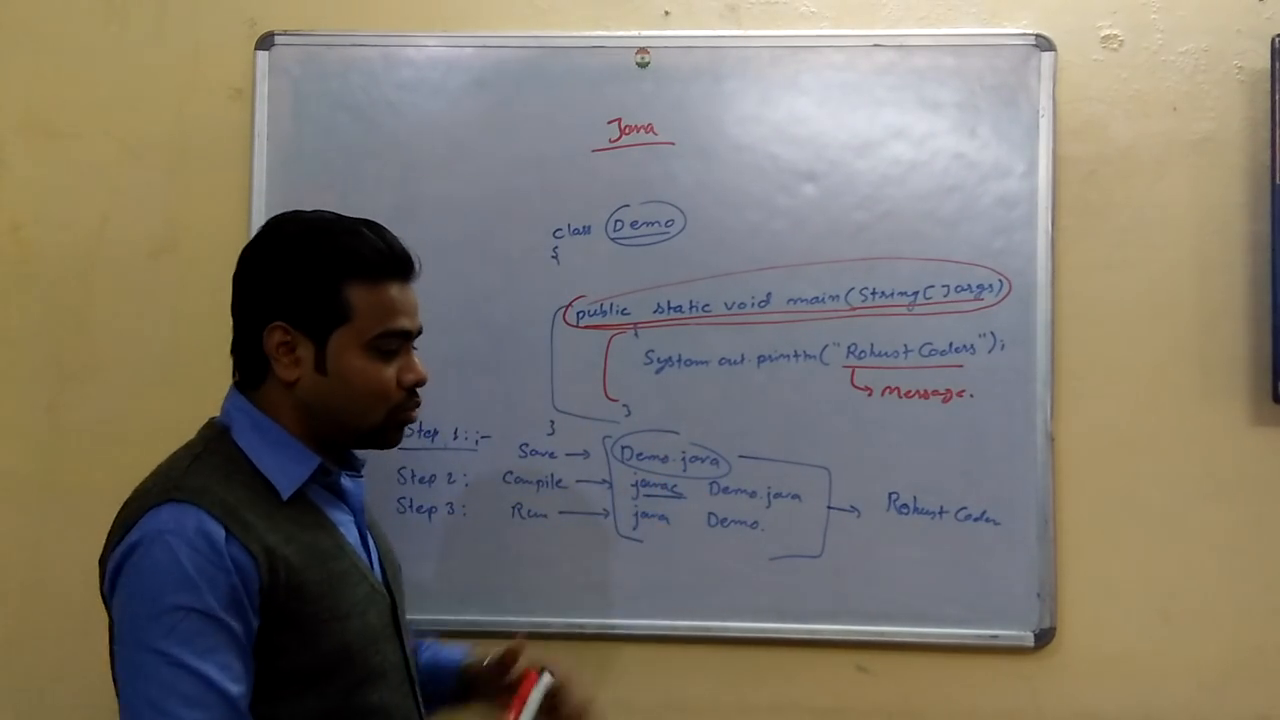 Java
class Demo
{
public static void main(String[] args)
{
System.out.println("Robust Coders");
Message.
}
}
Step 1:;-
Save → Demo.java
Step 2: Compile → javac Demo.java
Step 3: Run → java Demo.
→ Robust Coder